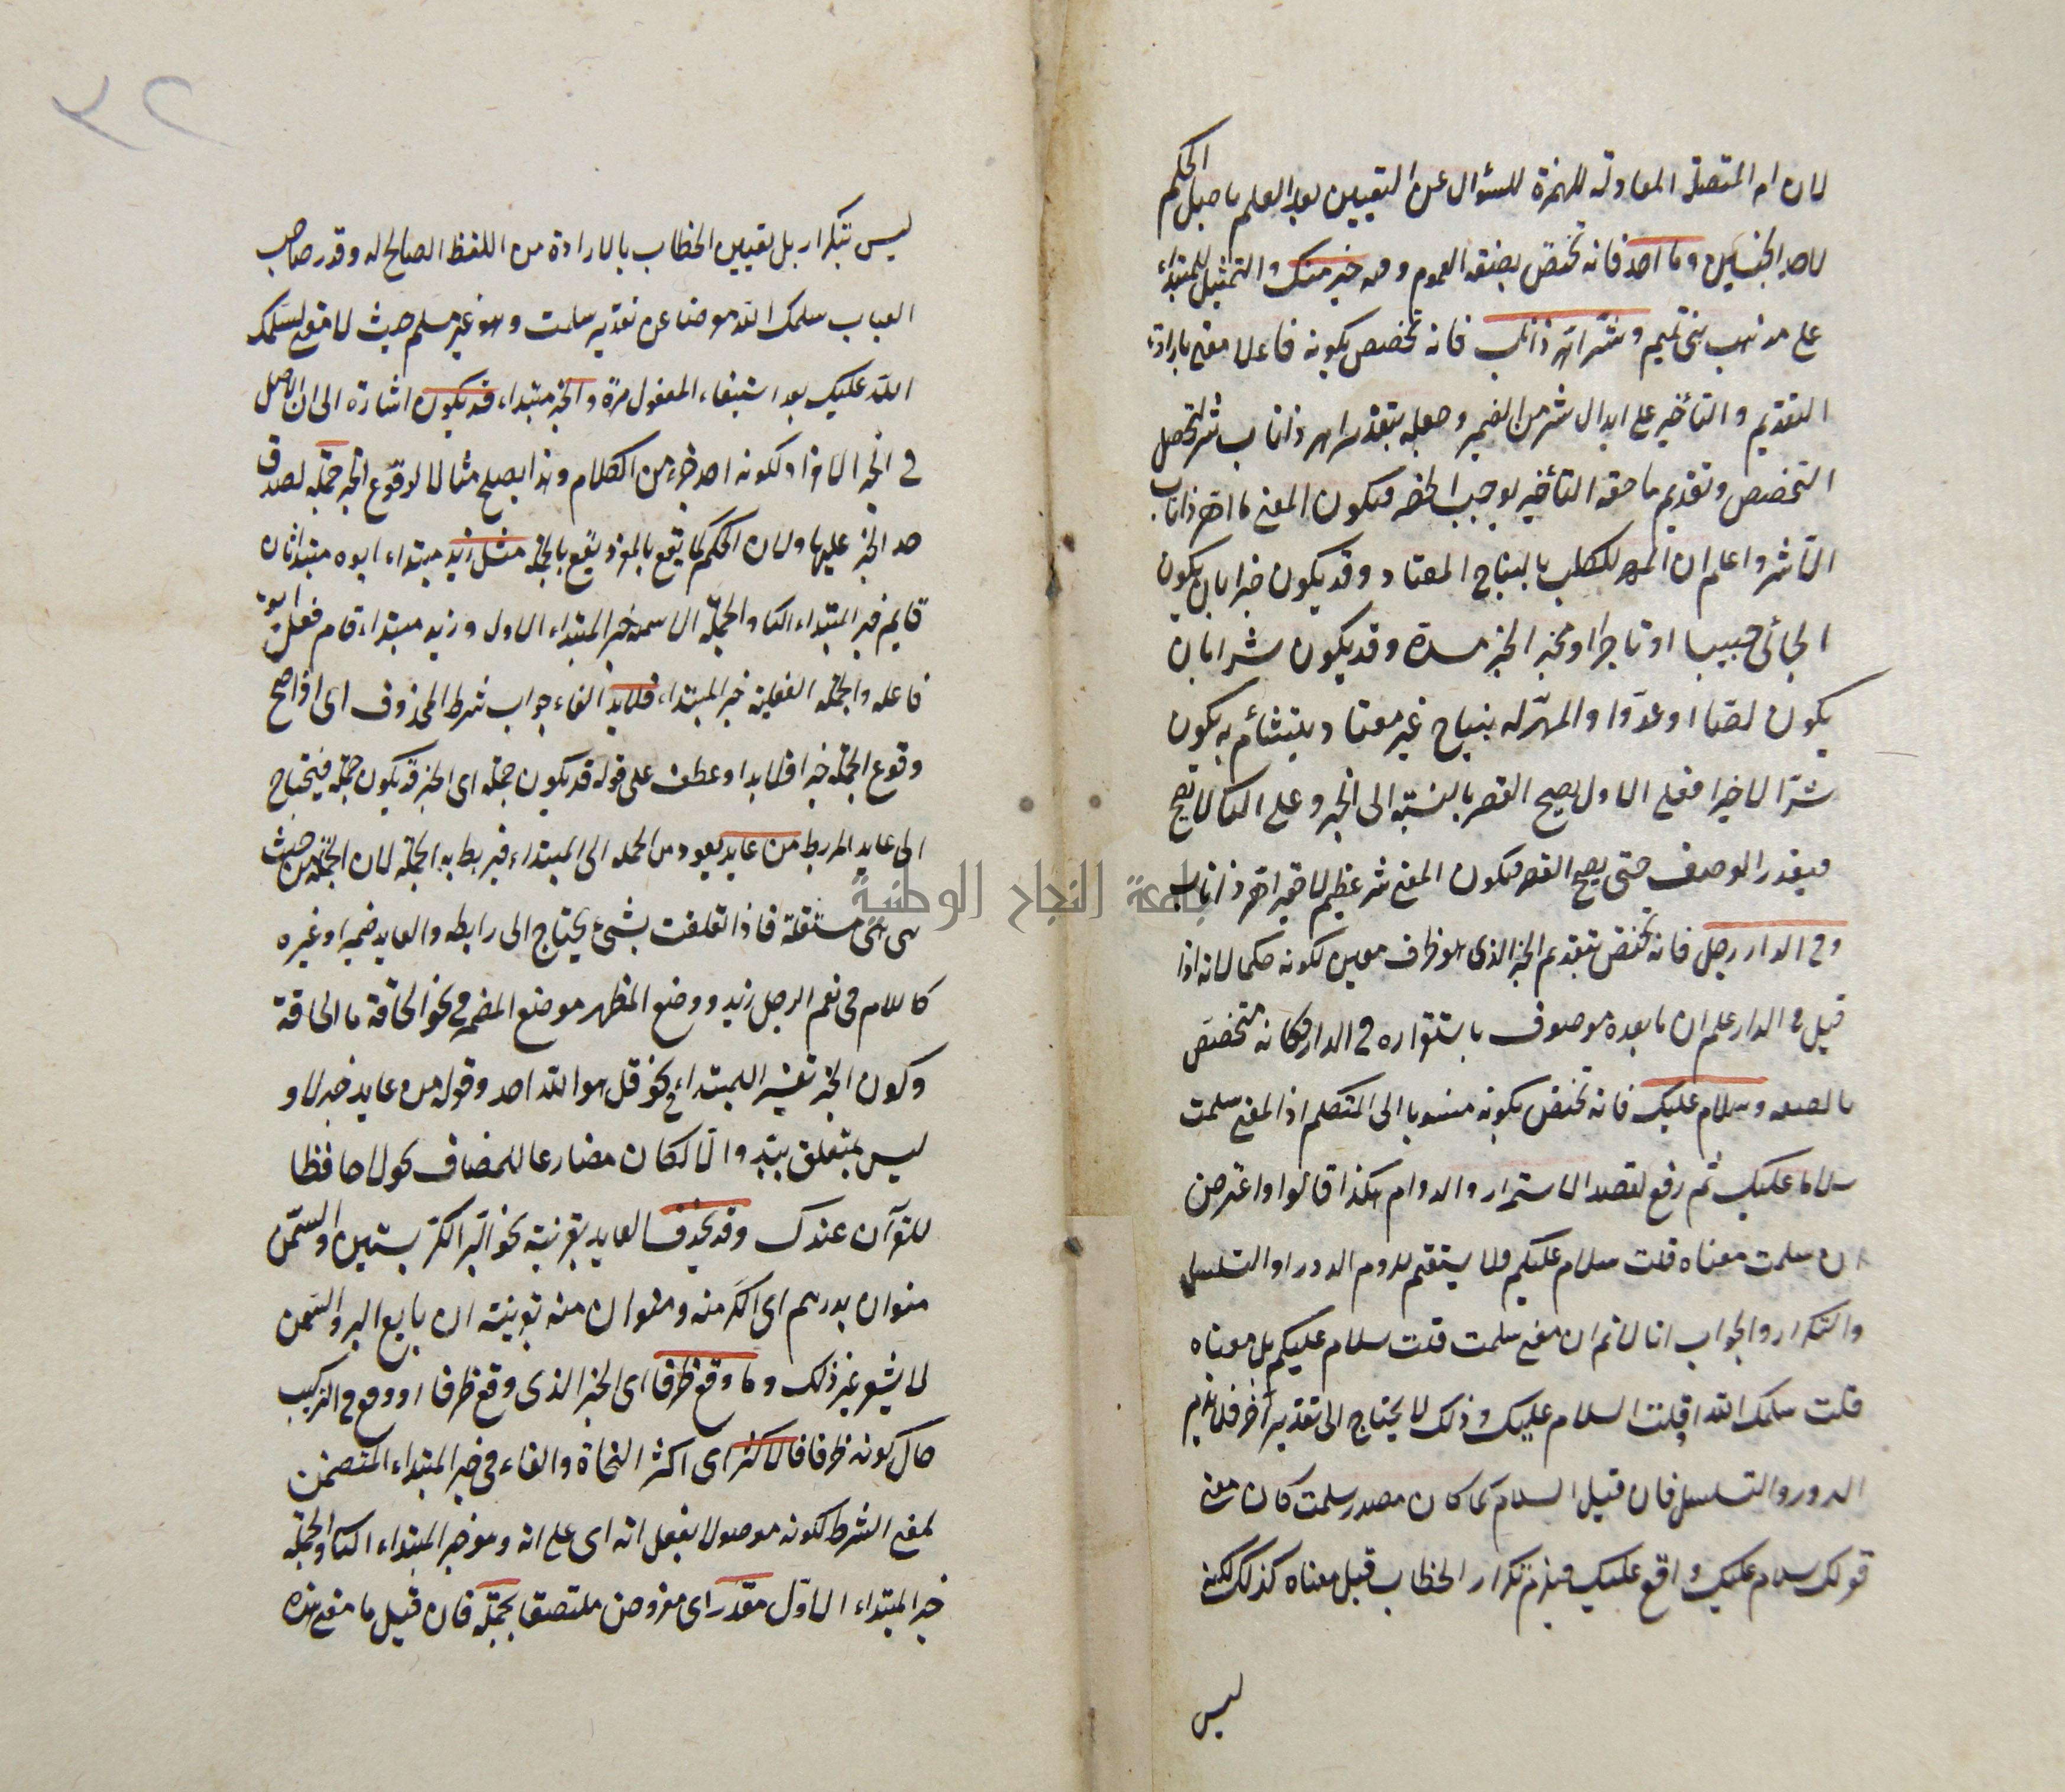 لان ام المتصلة المعادلة للهمزة للسؤال عن التعيين بعد العلم باصل الحكم
لاحد الجنسين وما احد فانه تخصص بصفة العموم وهو خير منك والتمثيل للمبتداء
على مذهب بنى تميم وشر اهر ذاناب فانه تخصص بكونه فاعلا معنى بارادة
التقديم والتأخير على ابدال شر من الضمير وجعله بتقدير اهر ذاناب شر لتحصل
التخصص وتقديم ما حقه التأخير يوجب الحصر فيكون المعنى ما اهر ذاناب
الا شر واعلم ان المهر للكلب بالنباح المعتاد وقد يكون خيرا بان يكون
الجائى حبيبا او تاجرا او مخبر الخبر مسرة وقد يكون شرا بان
يكون لصا او عدوا والمهر له بنباح غير معتاد يتشائم به يكون
شرا لا خيرا فعلى الاول يصح القصر بالنسبة الى الخير وعلى الثانى لا يصح
فيقدر الوصف حتى يصح القصر فيكون المعنى شر عظيم لا حقير اهر ذاناب
وفى الدار رجل فانه تخصص بتقديم الخبر الذى هو ظرف معين لكونه حكما لانه اذا
قيل فى الدار علم ان ما بعده موصوف باستقراره فى الدار فكانه متخصص
بالصفة وسلام عليك فانه تخصص بكونه منسوبا الى المتكلم اذ المعنى سلمت
سلاما عليك ثم رفع لقصد الاستمرار والدوام هكذا قالوا واعترض
ان سلمت معناه قلت سلام عليكم فلا يستقيم للزوم الدور او التسلسل
والتكرار والجواب انا لا نم ان معنى سلمت قلت سلام عليكم بل معناه
قلت سلمك الله او قلت السلام عليك وذلك لا يحتاج الى تقدير آخر فلا يلزم
الدور والتسلسل فان قيل السلام لما كان مصدر سلمت كان معنى
قولك سلام عليك واقع عليك فيلزم تكرار الخطاب قيل معناه كذلك لكنه
ليس
٣٢
ليس بتكرار بل تعيين الخطاب بالارادة من اللفظ الصالح له وقدر صاحب
العباب سلمك الله موضا عن تقدير سلمت وهو غير مسلم حيث لا معنى لسلمك
الله عليك بعد استيفاء المفعول مرة والخبر مبتداء قد يكون اشارة الى ان الاصل
فى الخبر الافراد لكونه احد جزء من الكلام وهذا يصلح مثالا لوقوع الخبر جملة لصدق
حد الخبر عليها ولان الحكم كما يقع بالمفرد يقع بالجملة مثل زيد مبتداء ابوه مبتدا ثان
قايم خبر المبتداء الثانى والجملة الاسمية خبر المبتداء الاول وزيد مبتداء قام فعل ابوه
فاعله والجملة الفعلية خبر المبتداء فلابد الفاء جواب شرط المحذوف اى اذا صح
وقوع الجملة خبرا فلابد او عطف على قوله قد يكون جملة اى الخبر قد يكون جملة فيحتاج
الى عايد المربط من عايد يعود من الجملة الى المبتداء فيربط به الجملة لان الجملة من حيث
هى هى مستقلة فاذا تعلقت بشئ يحتاج الى رابطه والعايد ضمير او غيره
كاللام فى نعم الرجل زيد ووضع المظهر موضع المضمر فى نحو الحاقة ما الحاقة
وكون الخبر تفسيرا للمبتداء نحو قل هو الله احد وقوله من عايد خبر لا و
ليس بمتعلق ببد والا لكان مضارعا للمضاف نحو لا حافظا
للقرآن عندك وقد يحذف العايد بقرينة نحو البر الكر بستين والسمن
منوان بدرهم اى الكر منه ومنوان منه بقرينة ان بايع البر والسمن
لا يسعر غير ذلك وما وقع ظرفا اى الخبر الذى وقع ظرفا او وقع فى التركيب
حال كونه ظرفا فالاكثر اى اكثر النحاة والفاء فى خبر المبتداء المتضمن
لمعنى الشرط لكونه موصولا بفعل انه اى على انه وهو خبر المبتداء الثانى والجملة
خبر المبتداء الاول مقدر اى مفروض ملتصقا بجملة فان قيل ما معنى هذه
جامعة النجاح الوطنية